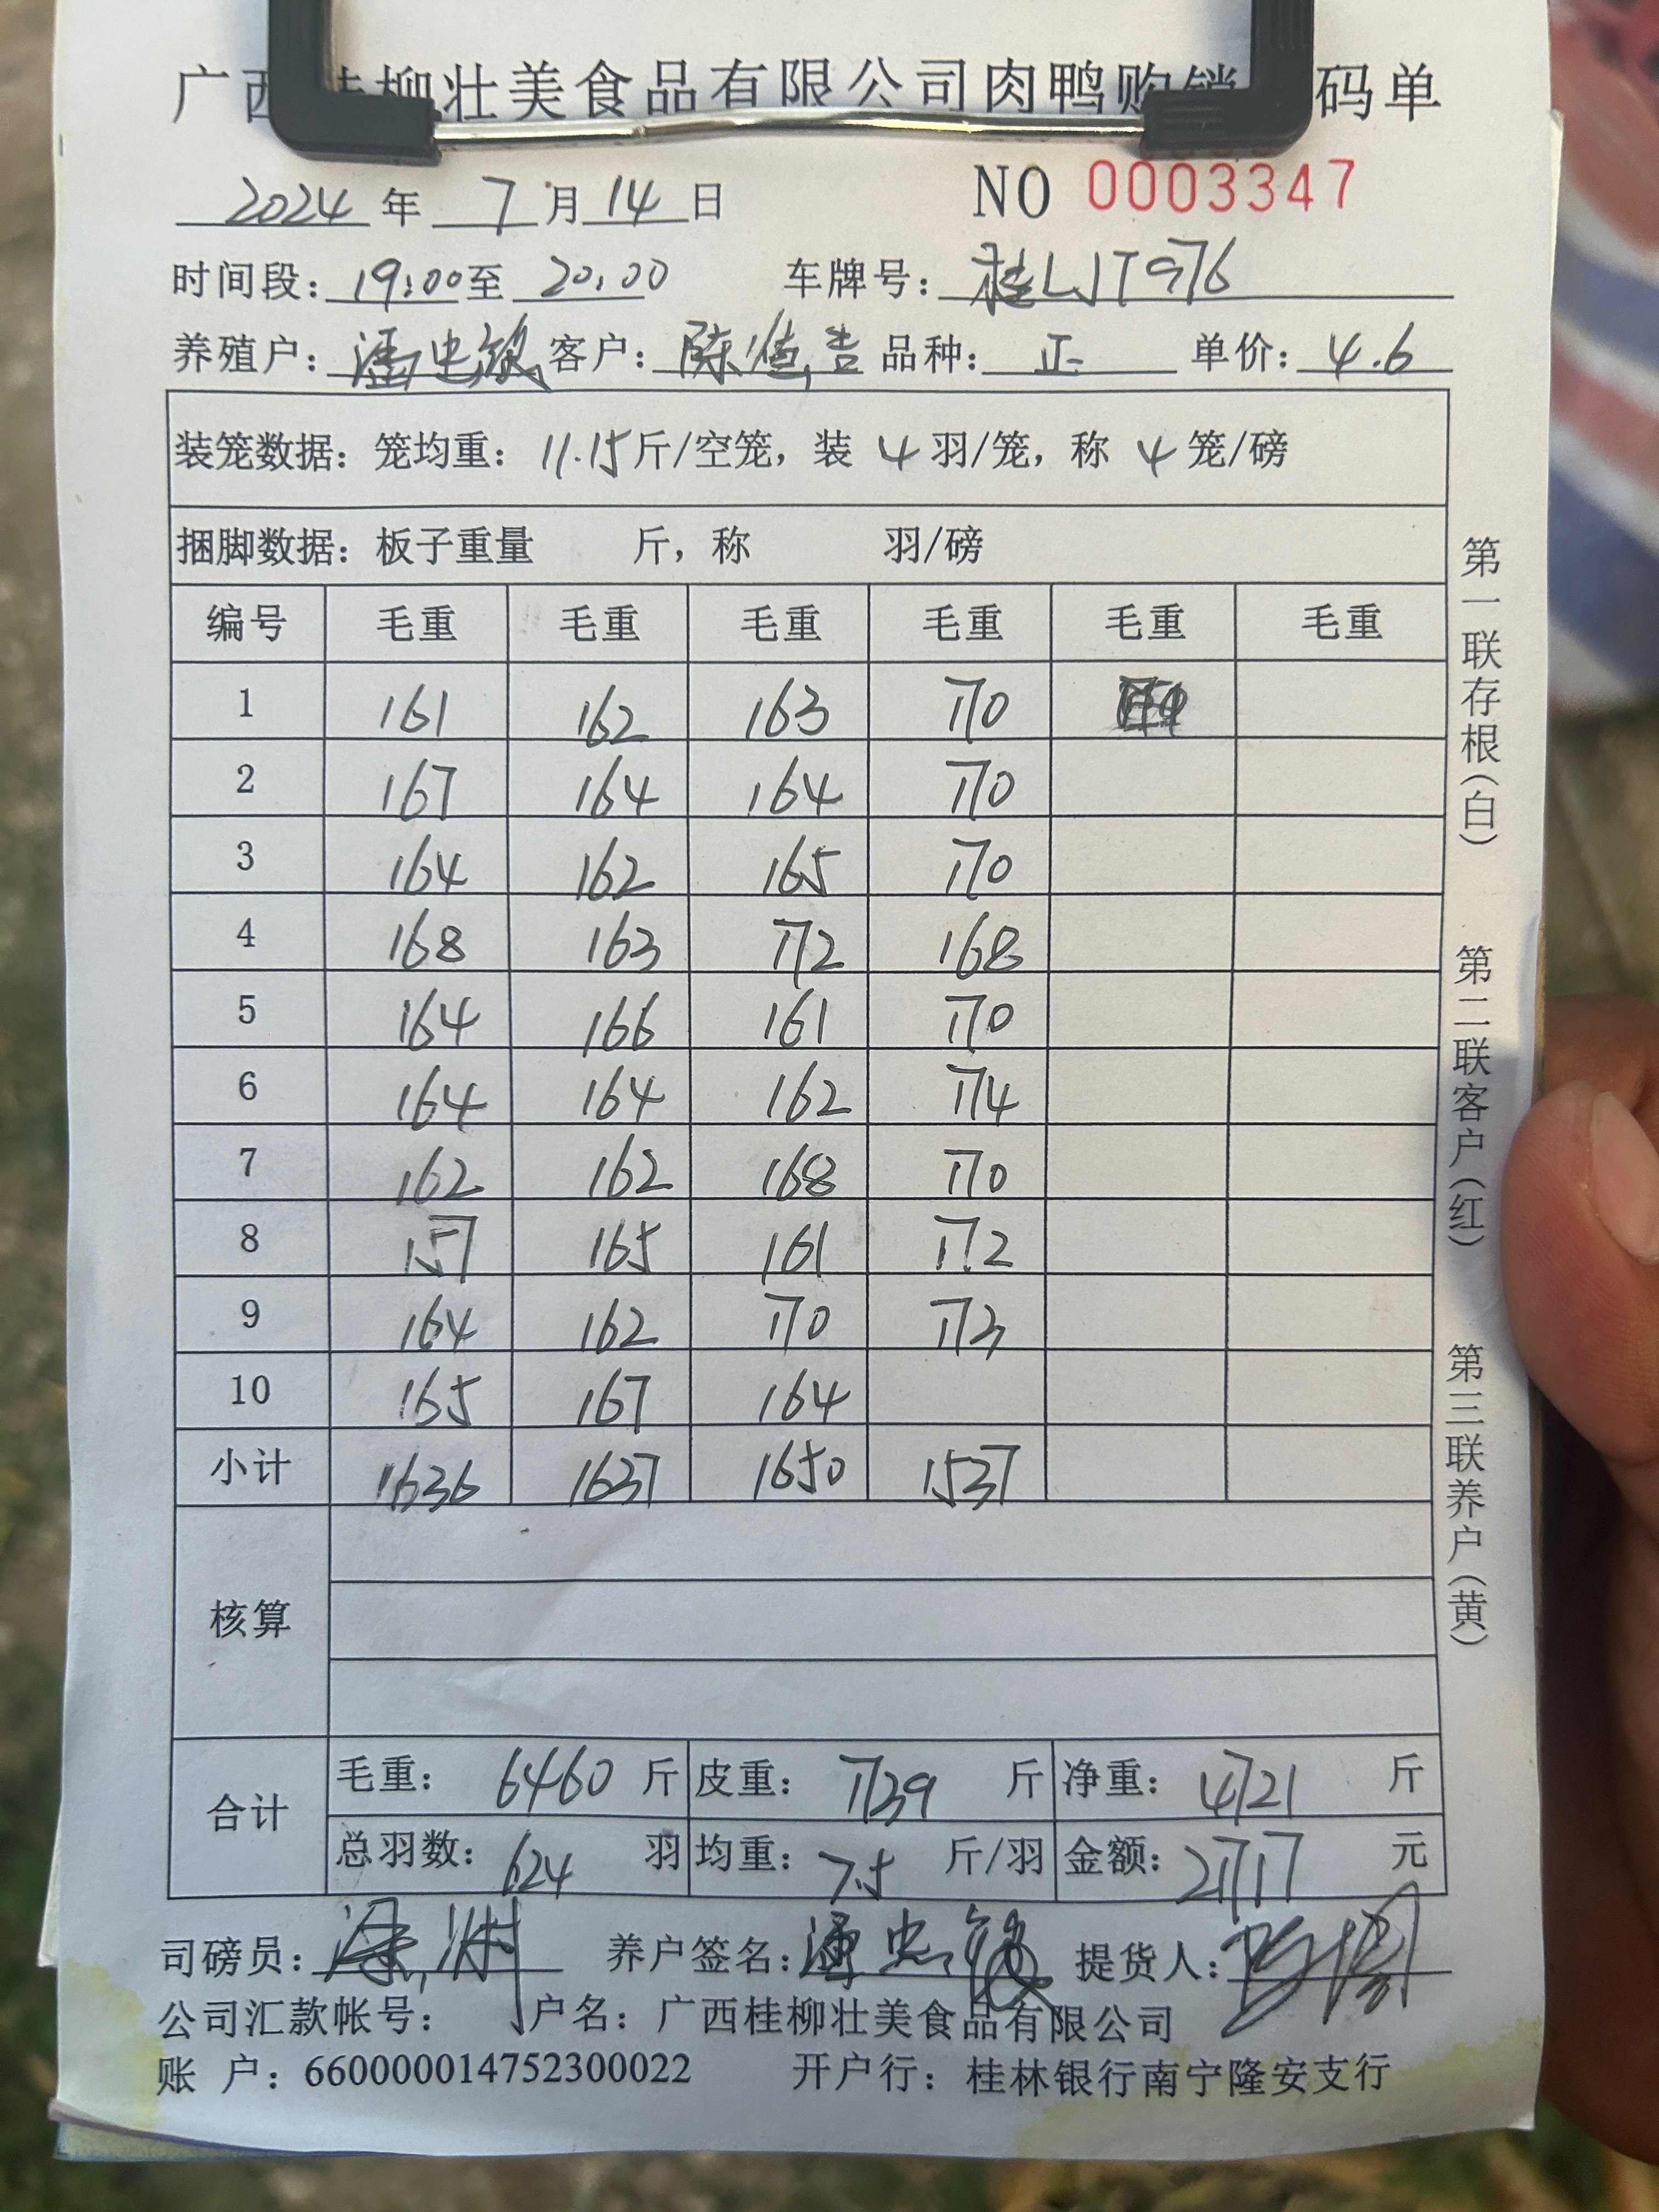 广西桂柳壮美食品有限公司肉鸭购销 码单
2024 年 7 月 14 日 NO 0003347
时间段: 19:00 至 20:00 车牌号: 桂LJT976
养殖户: 潘忠 客户: 陈 吉 品种: 正 单价: 4.6
装笼数据: 笼均重: 11.15 斤/空笼, 装 4 羽/笼, 称 4 笼/磅
捆脚数据: 板子重量 斤, 称 羽/磅
编号 毛重 毛重 毛重 毛重 毛重 毛重
1 161 162 163 170
2 167 164 164 170
3 164 162 165 170
4 168 163 172 168
5 164 166 161 170
6 164 164 162 174
7 162 162 168 170
8 157 165 161 172
9 164 162 170 173
10 165 167 164
小计 1636 1637 1650 1537
核算
合计
毛重: 6460 斤 皮重: 1739 斤 净重: 4721 斤
总羽数: 624 羽 均重: 7.5 斤/羽 金额: 21717 元
司磅员: 养户签名: 潘忠 提货人:
公司汇款帐号: 户名: 广西桂柳壮美食品有限公司
账 户: 660000014752300022 开户行: 桂林银行南宁隆安支行
第一联存根(白) 第二联客户(红) 第三联养户(黄)